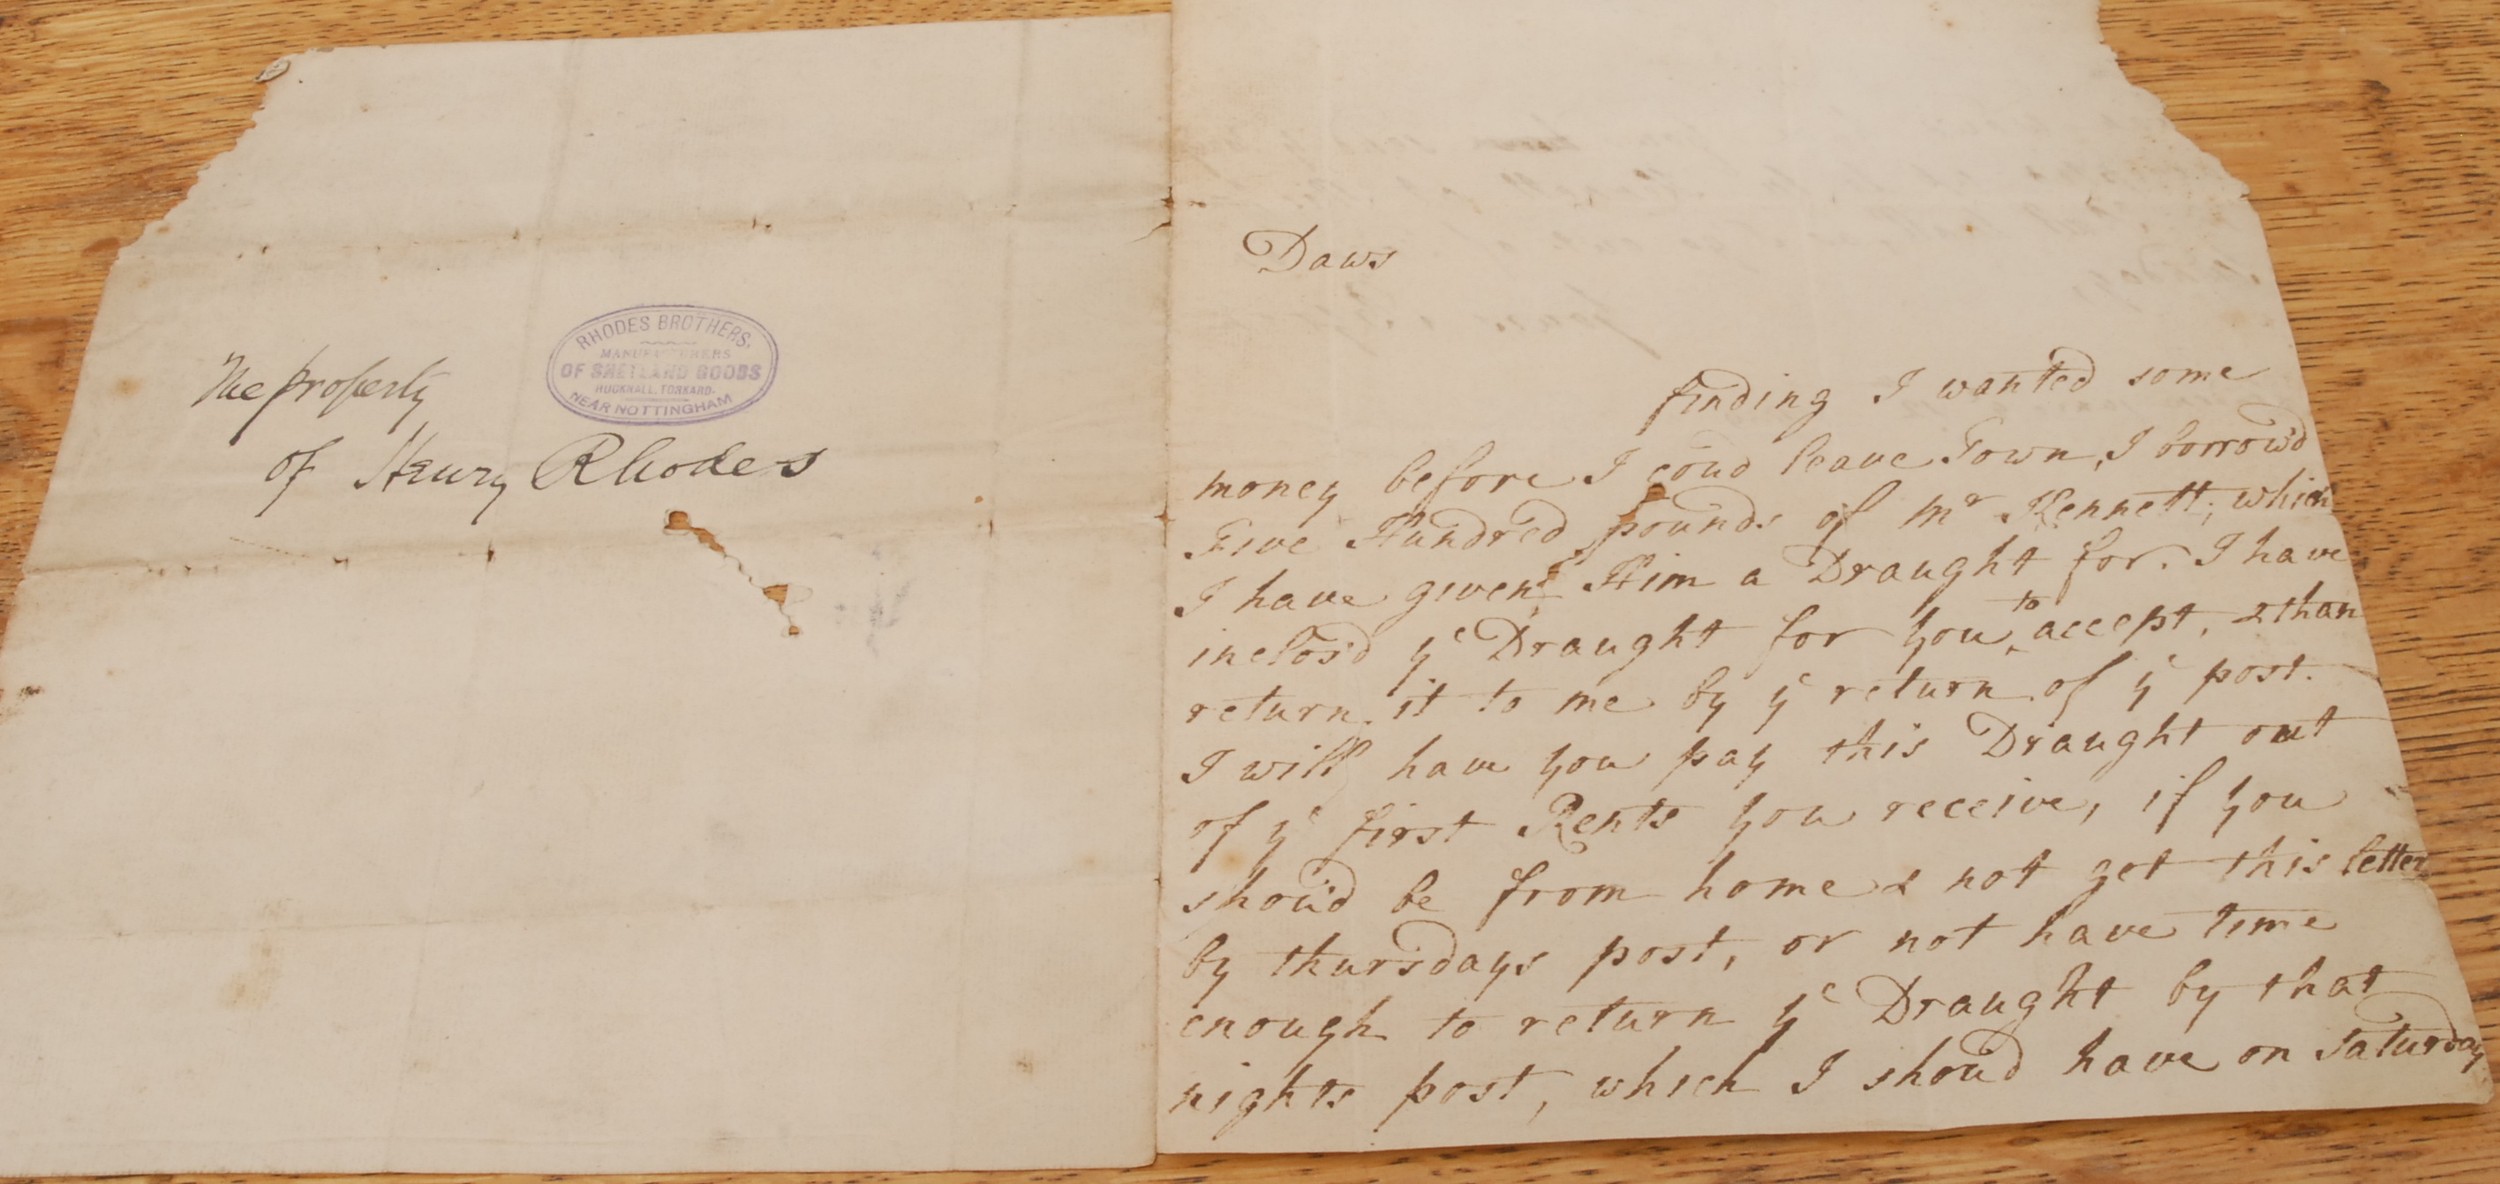 The property
of Henry Rhodes
RHODES BROTHERS.
MANUFACTURERS
OF SHETLAND GOODS
HUCKNALL TORKARD
NEAR NOTTINGHAM
Daws
finding I wanted some
money before I coud leave Town, I borrow'd
Five Hundred pounds of Mr Kennett, which
I have given Him a Draught for. I have
inclos'd ye Draught for you to accept, & than
return it to me by ye return of ye post.
I will have you pay this Draught out
of ye first Rents you receive, if you
shou'd be from home & not get this letter
by thursdays post, or not have time
enough to return ye Draught by that
nights post, which I shou'd have on saturday